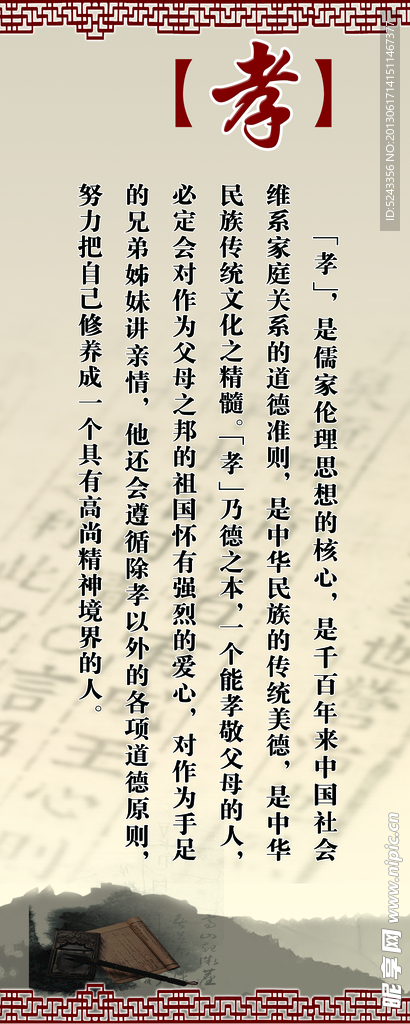 【孝】
「孝」，是儒家伦理思想的核心，是千百年来中国社会
维系家庭关系的道德准则，是中华民族的传统美德，是中华
民族传统文化之精髓。「孝」乃德之本，一个能孝敬父母的人，
必定会对作为父母之邦的祖国怀有强烈的爱心，对作为手足
的兄弟姊妹讲亲情，他还会遵循除孝以外的各项道德原则，
努力把自己修养成一个具有高尚精神境界的人。
ID:5243356 NO:20130617141511467377
昵享网 www.nipic.cn